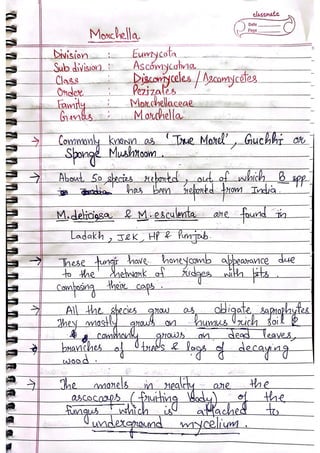 classmate
Date
Page
Morchella
Division : Eumycota
Sub division : Ascomycotina
Class : Discomyceles / Ascomycetes
Order : Pezizales
Family : Morchellaceae
Genus : Morchella
→ Commonly known as 'True Morel', Guchhi or
Sponge Mushroom.
→ About 50 species reported, out of which 8 spp.
has been reported from India.
M. deliciosa & M. esculenta are found in
Ladakh, J&K, HP & Punjab.
→ These fungi have honeycomb appearance due
to the network of ridges with pits
composing their caps.
→ All the species grow as obligate saprophytes
They mostly grows on humus rich soil &
commonly grows on dead leaves,
branches of trees & logs of decaying
wood.
→ The morels in reality are the
ascocarps (fruiting body) of the
fungus which is attached to
underground mycelium.